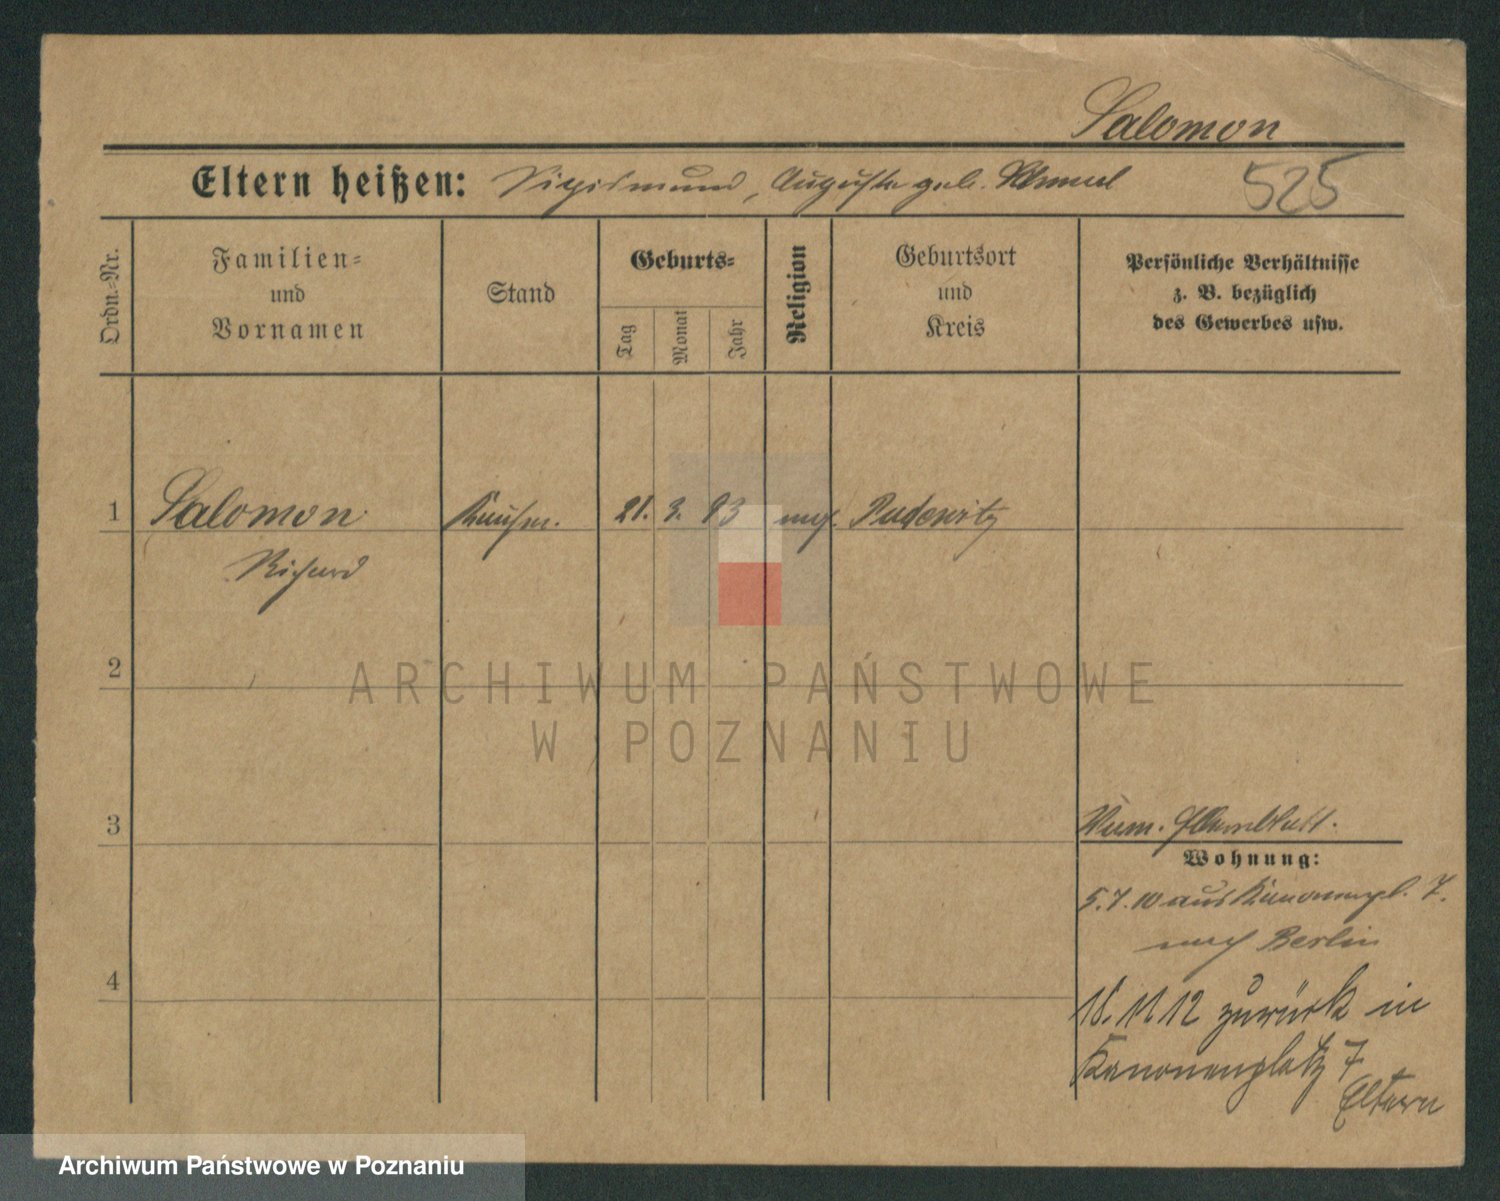 Salomon
Eltern heißen: Sigismund, Auguste geb.
525
Ordn.-Nr.
Familien-
und
Vornamen
Stand
Geburts-
Tag
Monat
Jahr
Religion
Geburtsort
und
Kreis
Persönliche Verhältnisse
z. B. bezüglich
des Gewerbes usw.
1 Salomon Kaufm. 21. 3. 93 mos. Pudewitz
Richard
2
ARCHIWUM PAŃSTWOWE
W POZNANIU
3
Wohnung:
5.7.10 aus Kanonenpl. 7.
nach Berlin
4
18.11.12 zurück in
Kanonenplatz 7
Eltern
Archiwum Państwowe w Poznaniu